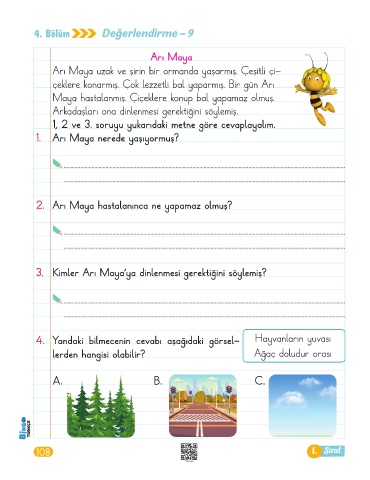 4. Bölüm Değerlendirme – 9
Arı Maya
Arı Maya uzak ve şirin bir ormanda yaşarmış. Çeşitli çi-
çeklere konarmış. Çok lezzetli bal yaparmış. Bir gün Arı
Maya hastalanmış. Çiçeklere konup bal yapamaz olmuş.
Arkadaşları ona dinlenmesi gerektiğini söylemiş.
1, 2 ve 3. soruyu yukarıdaki metne göre cevaplayalım.
1. Arı Maya nerede yaşıyormuş?
2. Arı Maya hastalanınca ne yapamaz olmuş?
3. Kimler Arı Maya'ya dinlenmesi gerektiğini söylemiş?
4. Yandaki bilmecenin cevabı aşağıdaki görsel-
lerden hangisi olabilir?
Hayvanların yuvası
Ağaç doludur orası
A. B. C.
Bingo
TÜRKÇE
108
1. Sınıf